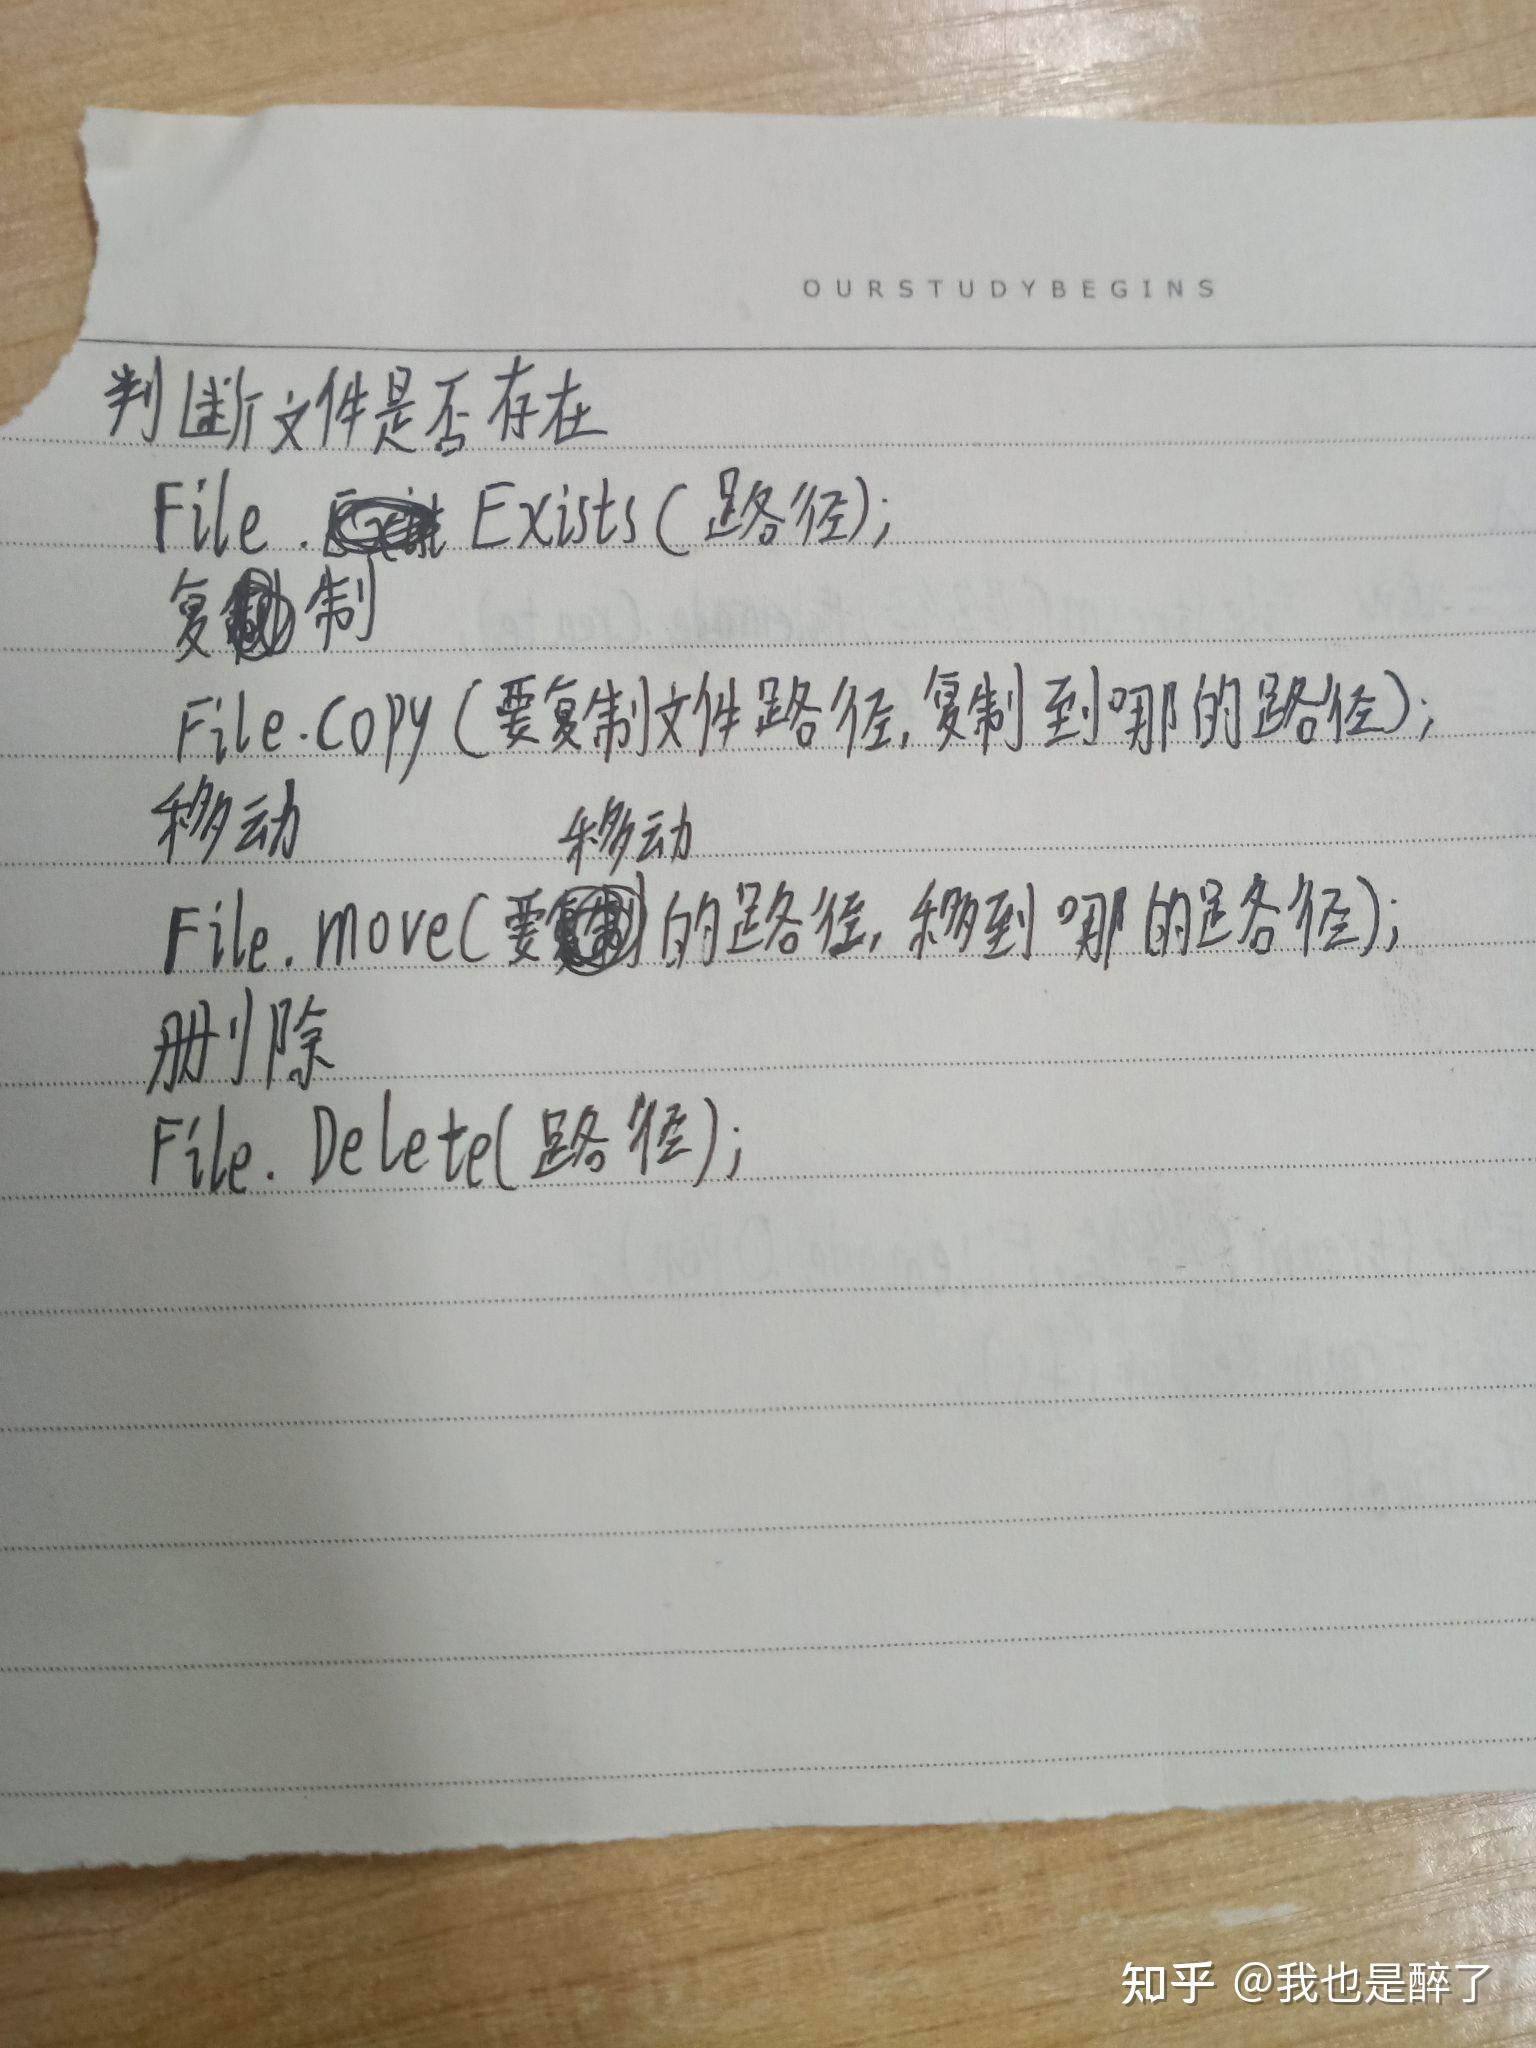 OURSTUDYBEGINS
判断文件是否存在
File. Exists(路径);
复制
File.copy(要复制文件路径,复制到哪的路径);
移动
移动
File.move(要的路径,移到哪的路径);
删除
File.Delete(路径);
知乎 @我也是醉了